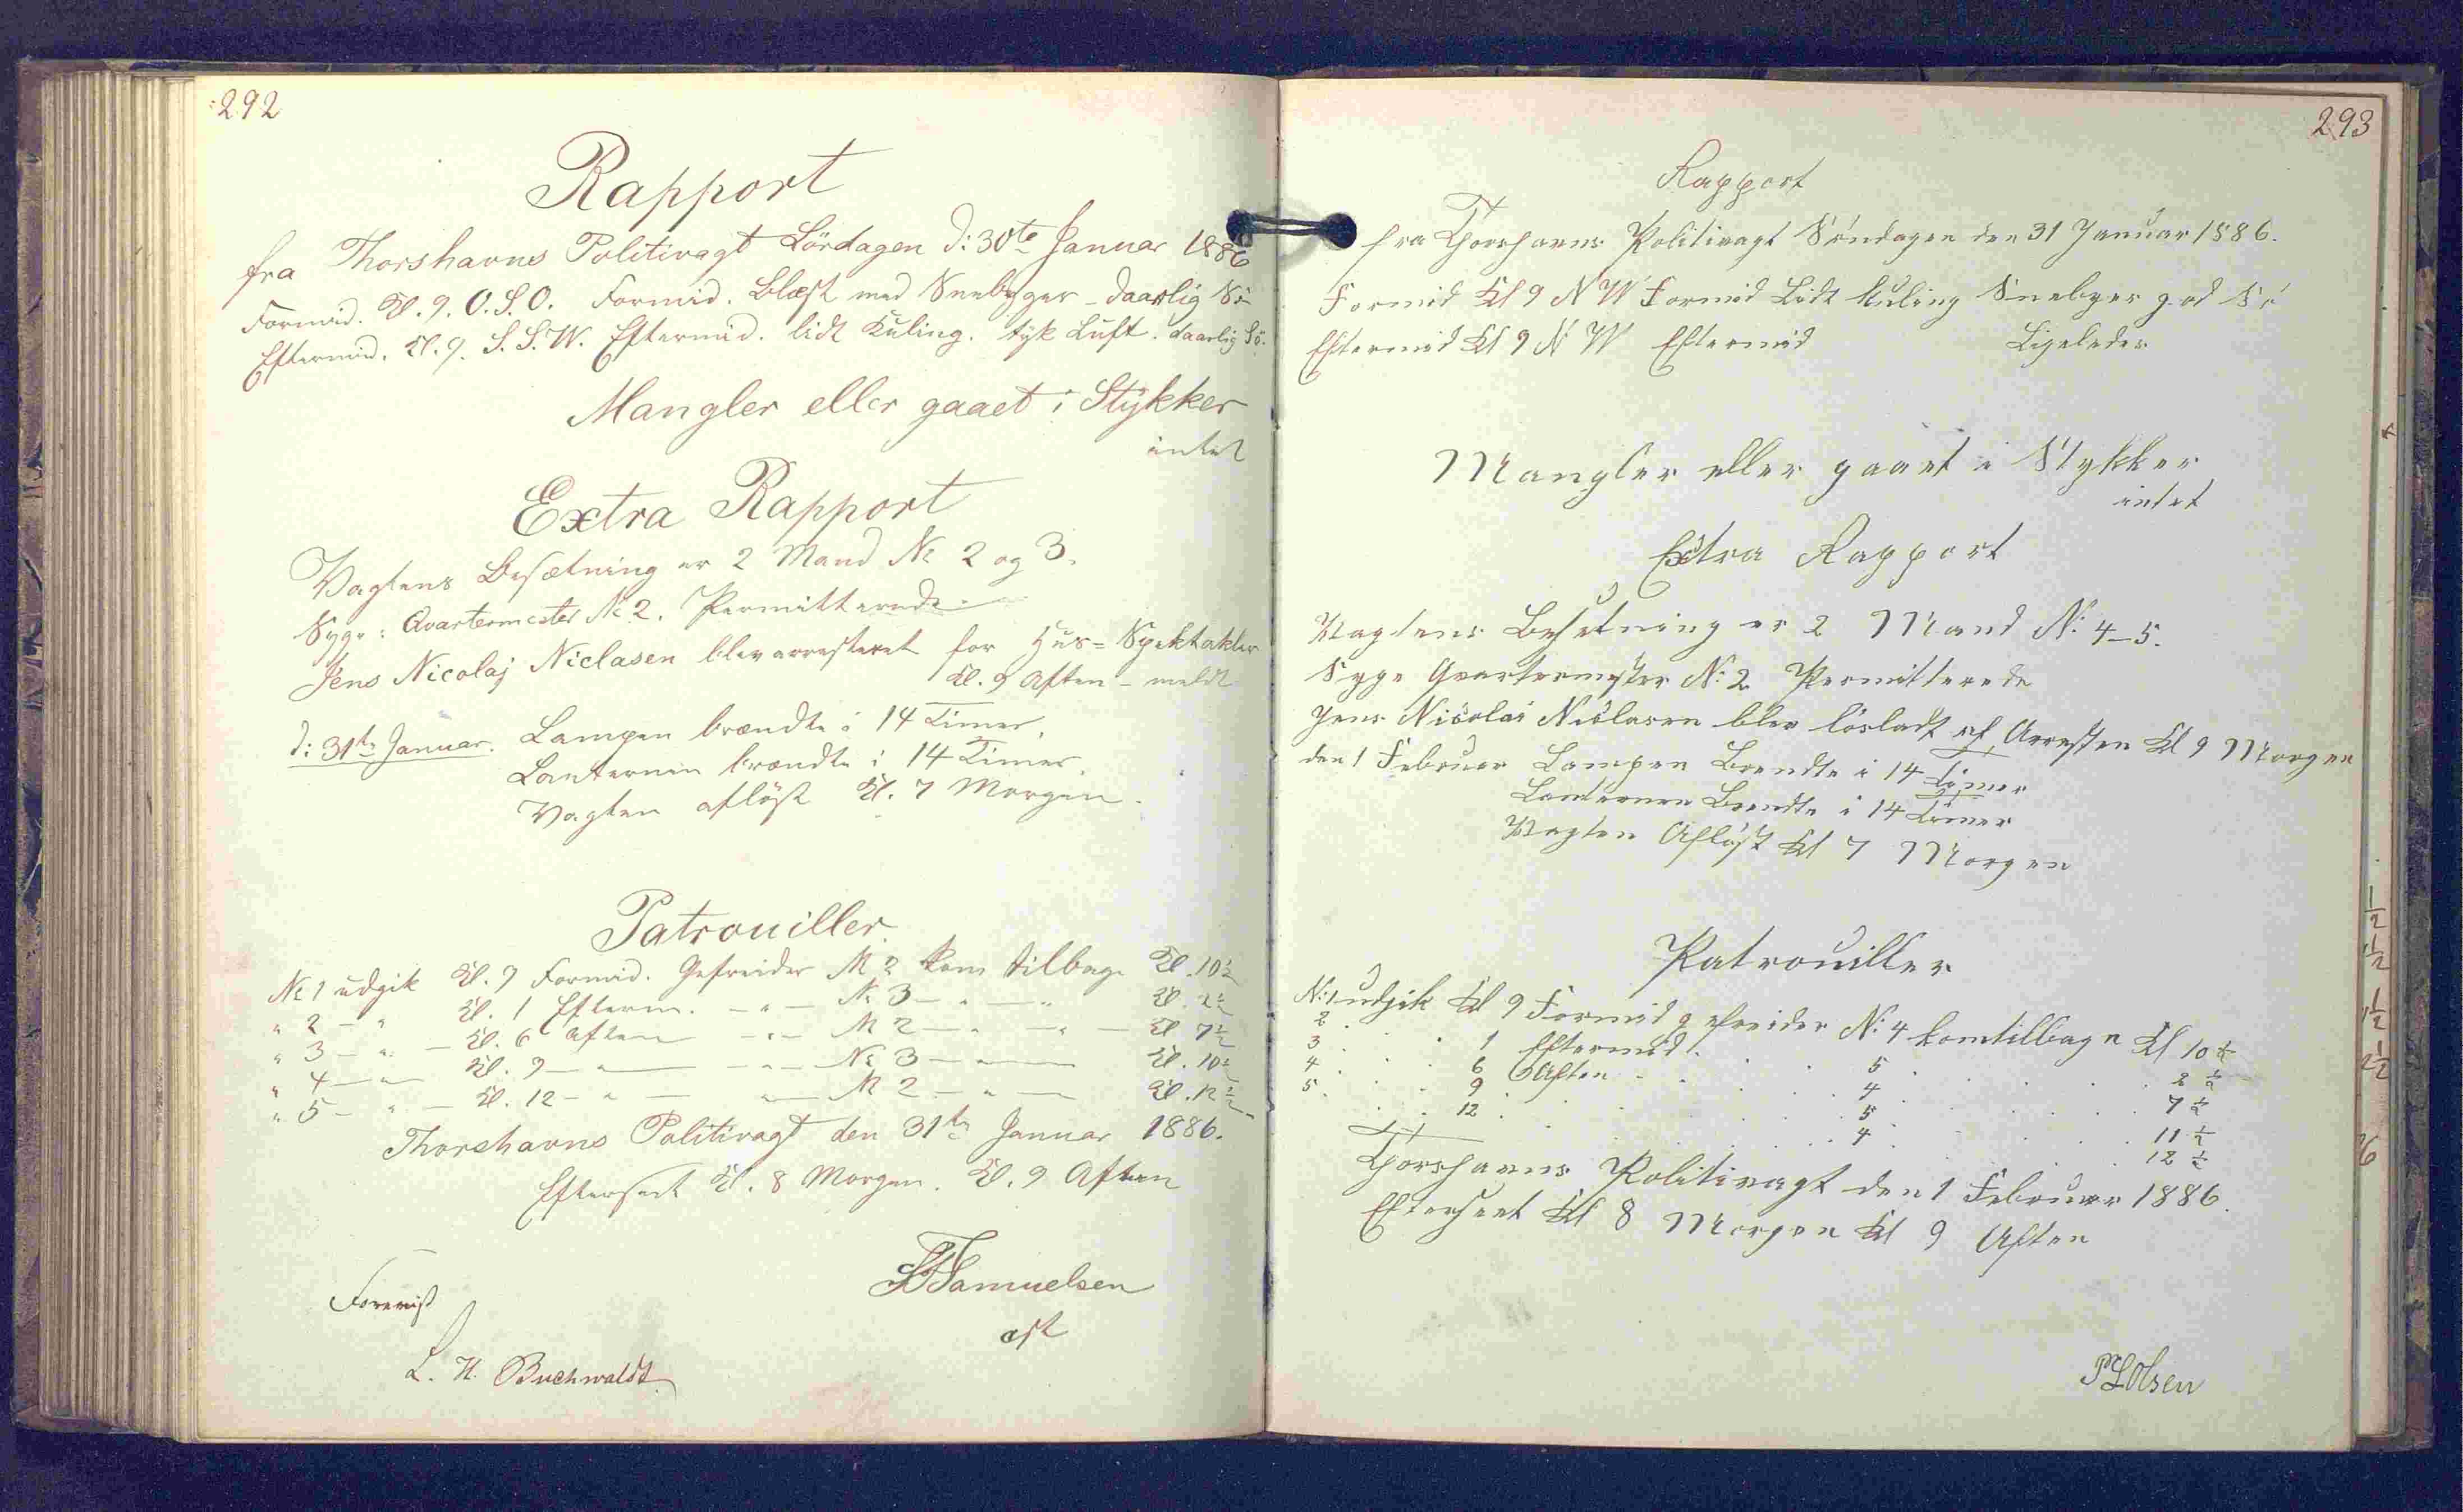 292
Rapport
fra Thorshavns Politivagt Lördagen d: 30te Januar 1886
Formid. Kl. 9. O.S.O. Formid. Blæst med Sneebyger - daarlig Sö
Eftermid. Kl. 9. S.S.W. Eftermid. lidt Kuling. tyk Luft. daarlig Sö.
Mangler eller gaaet i Stykker
intet
Extra Rapport
Vagtens Besætning er 2 Mand No 2 og 3.
Syge: Qvartermester No 2. Permitterede
Jens Nicolaj Niclasen blev arresteret for Hus-Spektakler
Kl. 9 Aften - meldt
d: 31te Januar. Lampen brændte i 14 Timer.
Lanternen brændte i 14 Timer.
Vagten aflöst Kl. 7 Morgen.
Patrouiller
No 1 udgik Kl. 9 Formid. Gefreider No 2 kom tilbage Kl. 10½
" 2 - " Kl. 1 Efterm. - " - No 3 - " - " Kl. 2½
" 3 - " - Kl. 6 Aften - " - No 2 - " - " - Kl. 7½
" 4 - " Kl. 9 - " - " - No 3 - " - Kl. 10½
" 5 - " - Kl. 12 - " - " - No 2 - " - Kl. 12½
Thorshavns Politivagt den 31te Januar 1886.
Efterseet Kl. 8 Morgen. Kl. 9 Aften
Samuelsen
cst
Forevist
L. H. Buchwaldt
293
Rapport
fra Thorshavns Politivagt Söndagen den 31 Januar 1886.
Formid Kl 9 N W Formid Lidt Kuling Snebyer god Sö
Eftermid Kl 9 N W Eftermid Ligeledes
Mangler eller gaaet i Stykker
intet
Extra Rapport
Vagtens Besetning er 2 Mand N: 4-5.
Syge Qvartermester N: 2 Permitterede
Jens Nicolai Niclasen blev lösladt af Arresten Kl 9 Morgen
den 1 Februar Lampen Brendte i 14 Timer
Lanternen Brendte i 14 Timer
Vagten Aflöst Kl 7 Morgen
Patrouiller
N: 1 udgik Kl 9 Formid gefreider N: 4 kom tilbage Kl 10½
2 . . 1 Eftermid . . 5 . . 2½
3 . . 6 Aften . . 4 . . 7½
4 . . 9 . . 5 . . 11½
5 . . 12 . . 4 . . 12½
Thorshavns Politivagt den 1 Februar 1886.
Efterseet Kl 8 Morgen Kl 9 Aften
Olsen